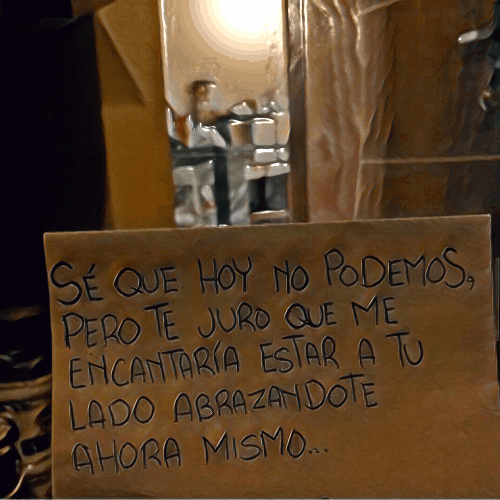 SÉ QUE HOY NO PODEMOS,
PERO TE JURO QUE ME
ENCANTARÍA ESTAR A TU
LADO ABRAZANDOTE
AHORA MISMO...